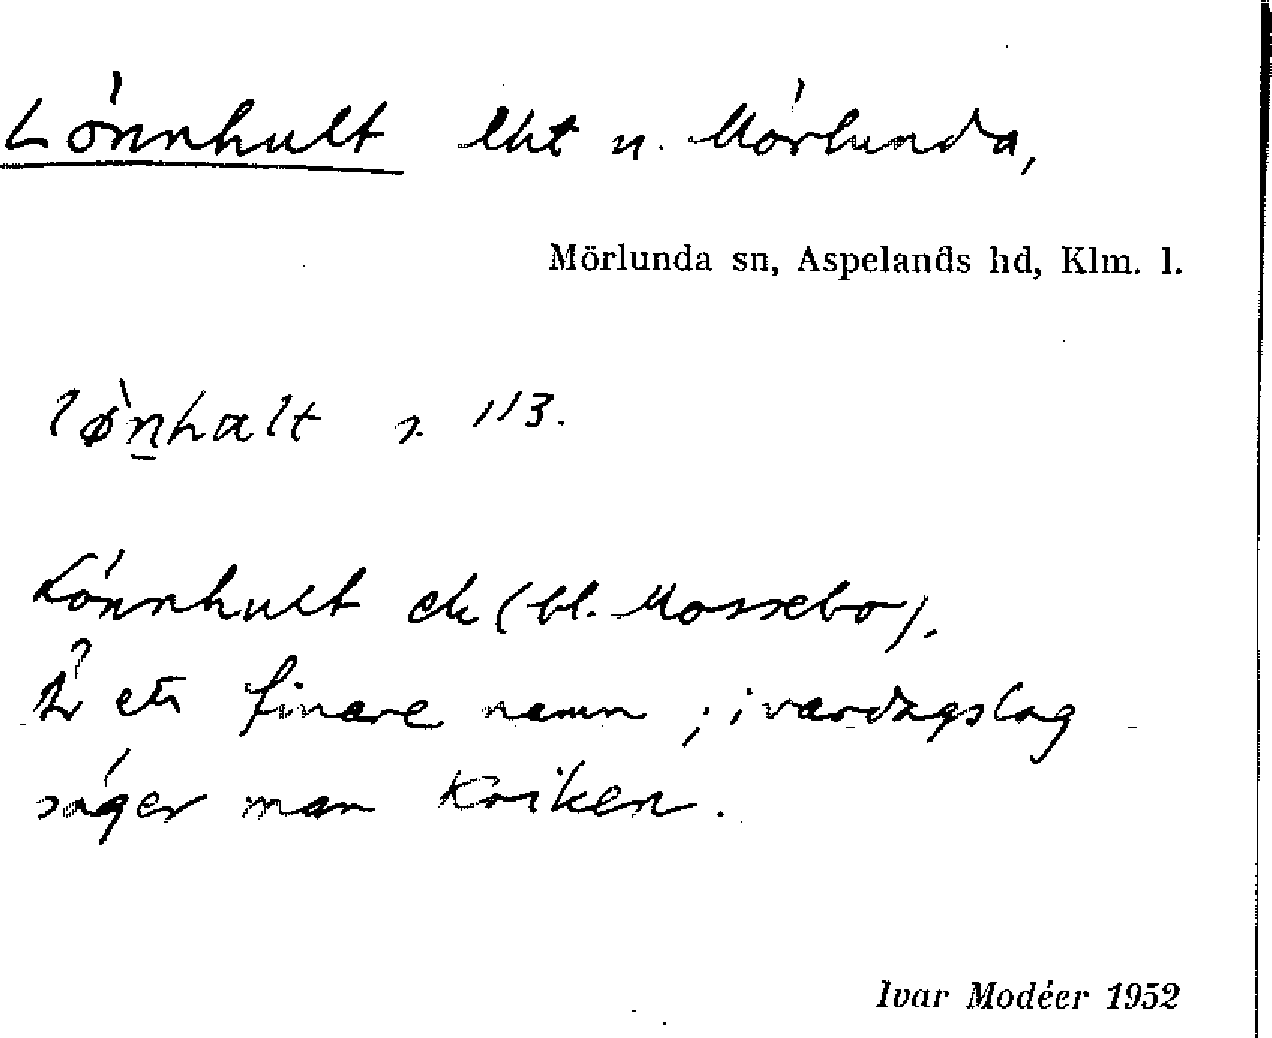 Lönnhult lht n. Mörlunda,
Mörlunda sn, Aspelands hd, Klm. l.
lø̀n̲halt s. 113.
Lönnhult ek (bl. Mossebo).
Är ett finare namn; i vardagslag
säger man Kriken.
Ivar Modéer 1952